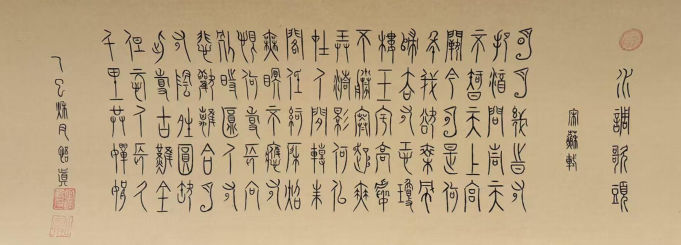 水調歌頭
宋蘇軾
明月幾時有
把酒問青天
不知天上宮
闕今夕是何
年我欲乘風
歸去又恐瓊
樓玉宇高處
不勝寒起舞
弄清影何似
在人間轉朱
閣低綺戶照
無眠不應有
恨何事長向
別時圓人有
悲歡離合月
有陰晴圓缺
此事古難全
但願人長久
千里共嬋娟
乙巳秋月